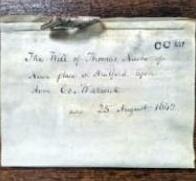 The Will of Thomas Nashe of
New place in Stratford upon
Avon Co. Warwick
25 August 1642